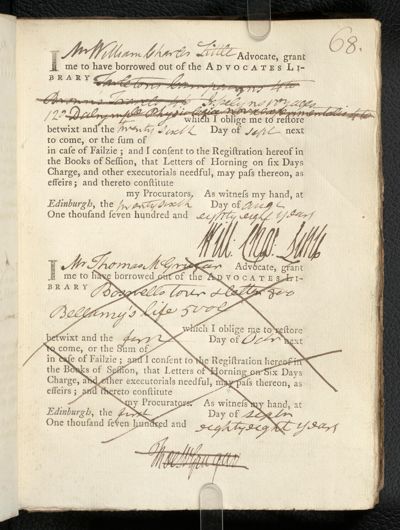 68.
I Mr William Charles Little Advocate, grant
me to have borrowed out of the ADVOCATES LI-
BRARY Tarletons Campaigns 4to
Travels 4to voyages
12o Dalrymples
which I oblige me to restore
betwixt and the twenty sixth Day of Sepr next
to come, or the sum of
in case of Failzie; and I consent to the Registration hereof in
the Books of Session, that Letters of Horning on six Days
Charge, and other executorials needful, may pass thereon, as
effeirs; and thereto constitute
my Procurators, As witness my hand, at
Edinburgh, the twenty sixth Day of Augt
One thousand seven hundred and eighty eight years
Will: Chas: Little
I Mr Thomas McGrugar Advocate, grant
me to have borrowed out of the ADVOCATES LI-
BRARY Boswells tour & letter 8vo
Bellamy's life 5 vols
which I oblige me to restore
betwixt and the first Day of Octr next
to come, or the Sum of
in case of Failzie; and I consent to the Registration hereof in
the Books of Session, that Letters of Horning on Six Days
Charge, and other executorials needful, may pass thereon, as
effeirs; and thereto constitute
my Procurators. As witness my hand, at
Edinburgh, the first Day of Septr
One thousand seven hundred and eighty eight years
Thos McGrugar